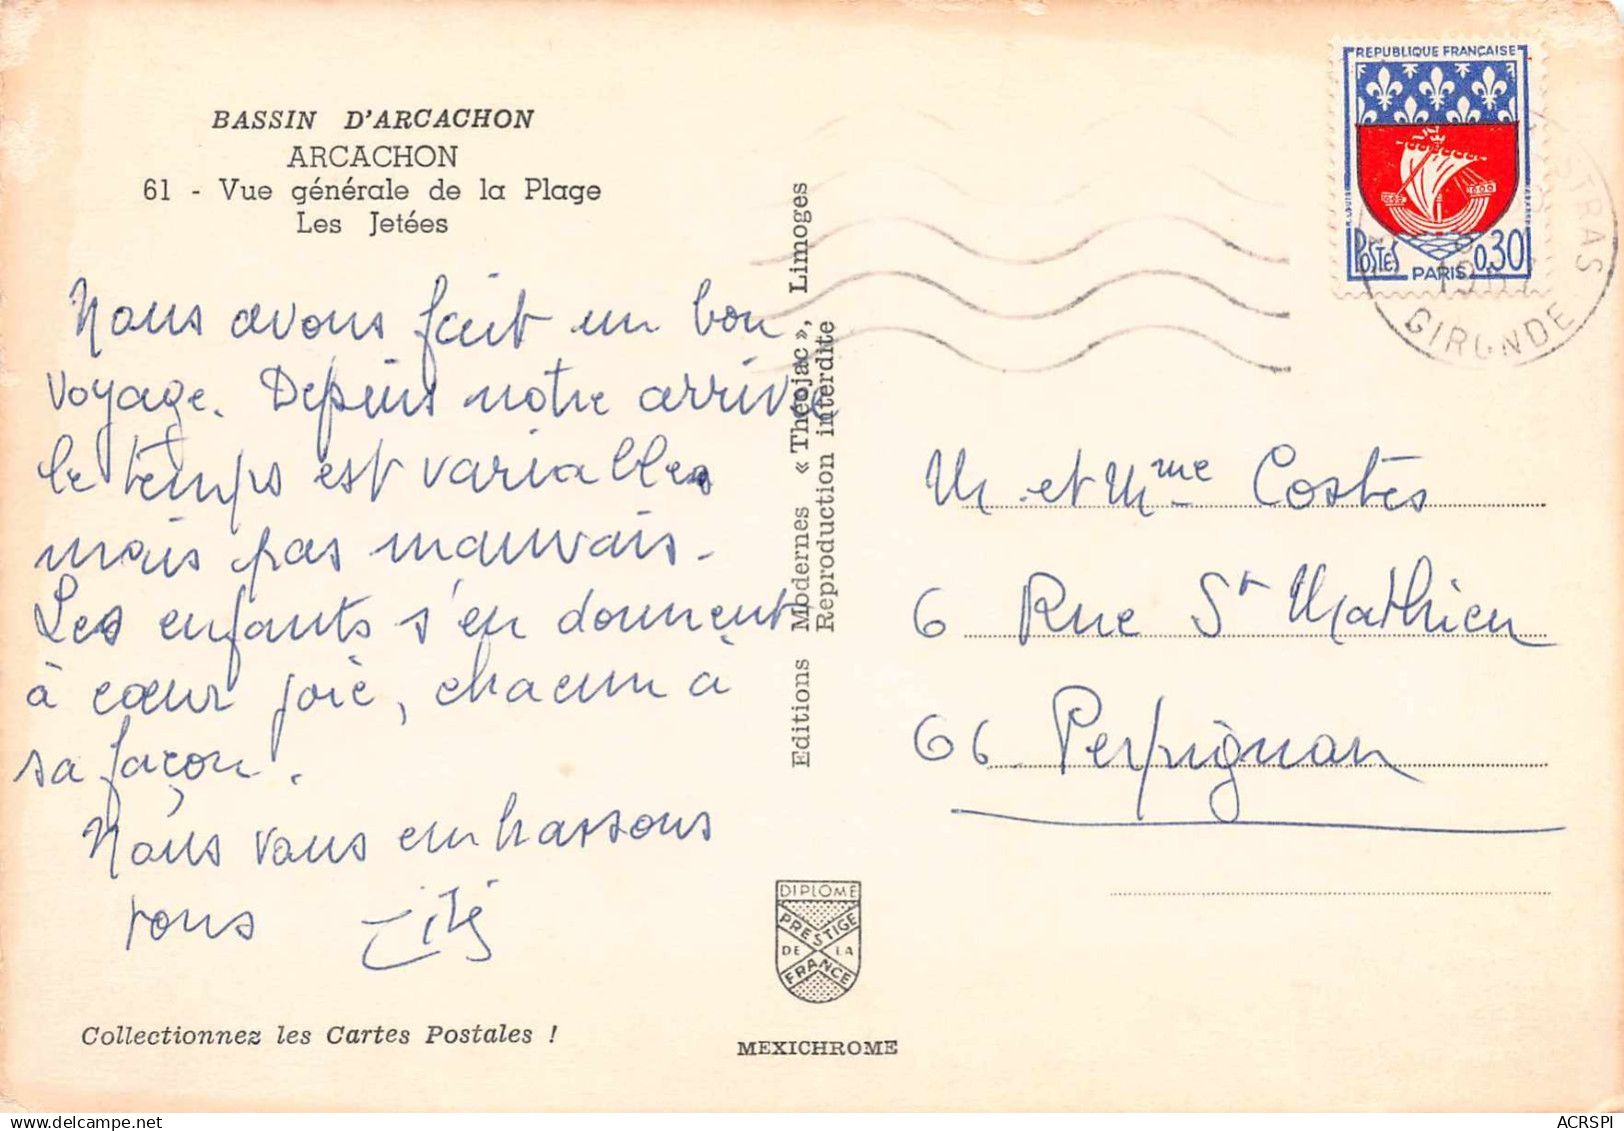 BASSIN D'ARCACHON
ARCACHON
61 - Vue générale de la Plage
Les Jetées
Nous avons fait un bon
voyage. Depuis notre arrivée
le temps est variables
mais pas mauvais.
Les enfants s'en donnent
à cœur joie, chacun à
sa façon.
Nous vous embrassons
tous
Collectionnez les Cartes Postales !
Editions Modernes « Théojac », Limoges
Reproduction interdite
DIPLOME
PRESTIGE
DE LA
FRANCE
MEXICHROME
REPUBLIQUE FRANÇAISE
POSTES
0,30
PARIS
GIRONDE
M. et Mme Costes
6 Rue St Mathieu
66 Perpignan
ACRSPI